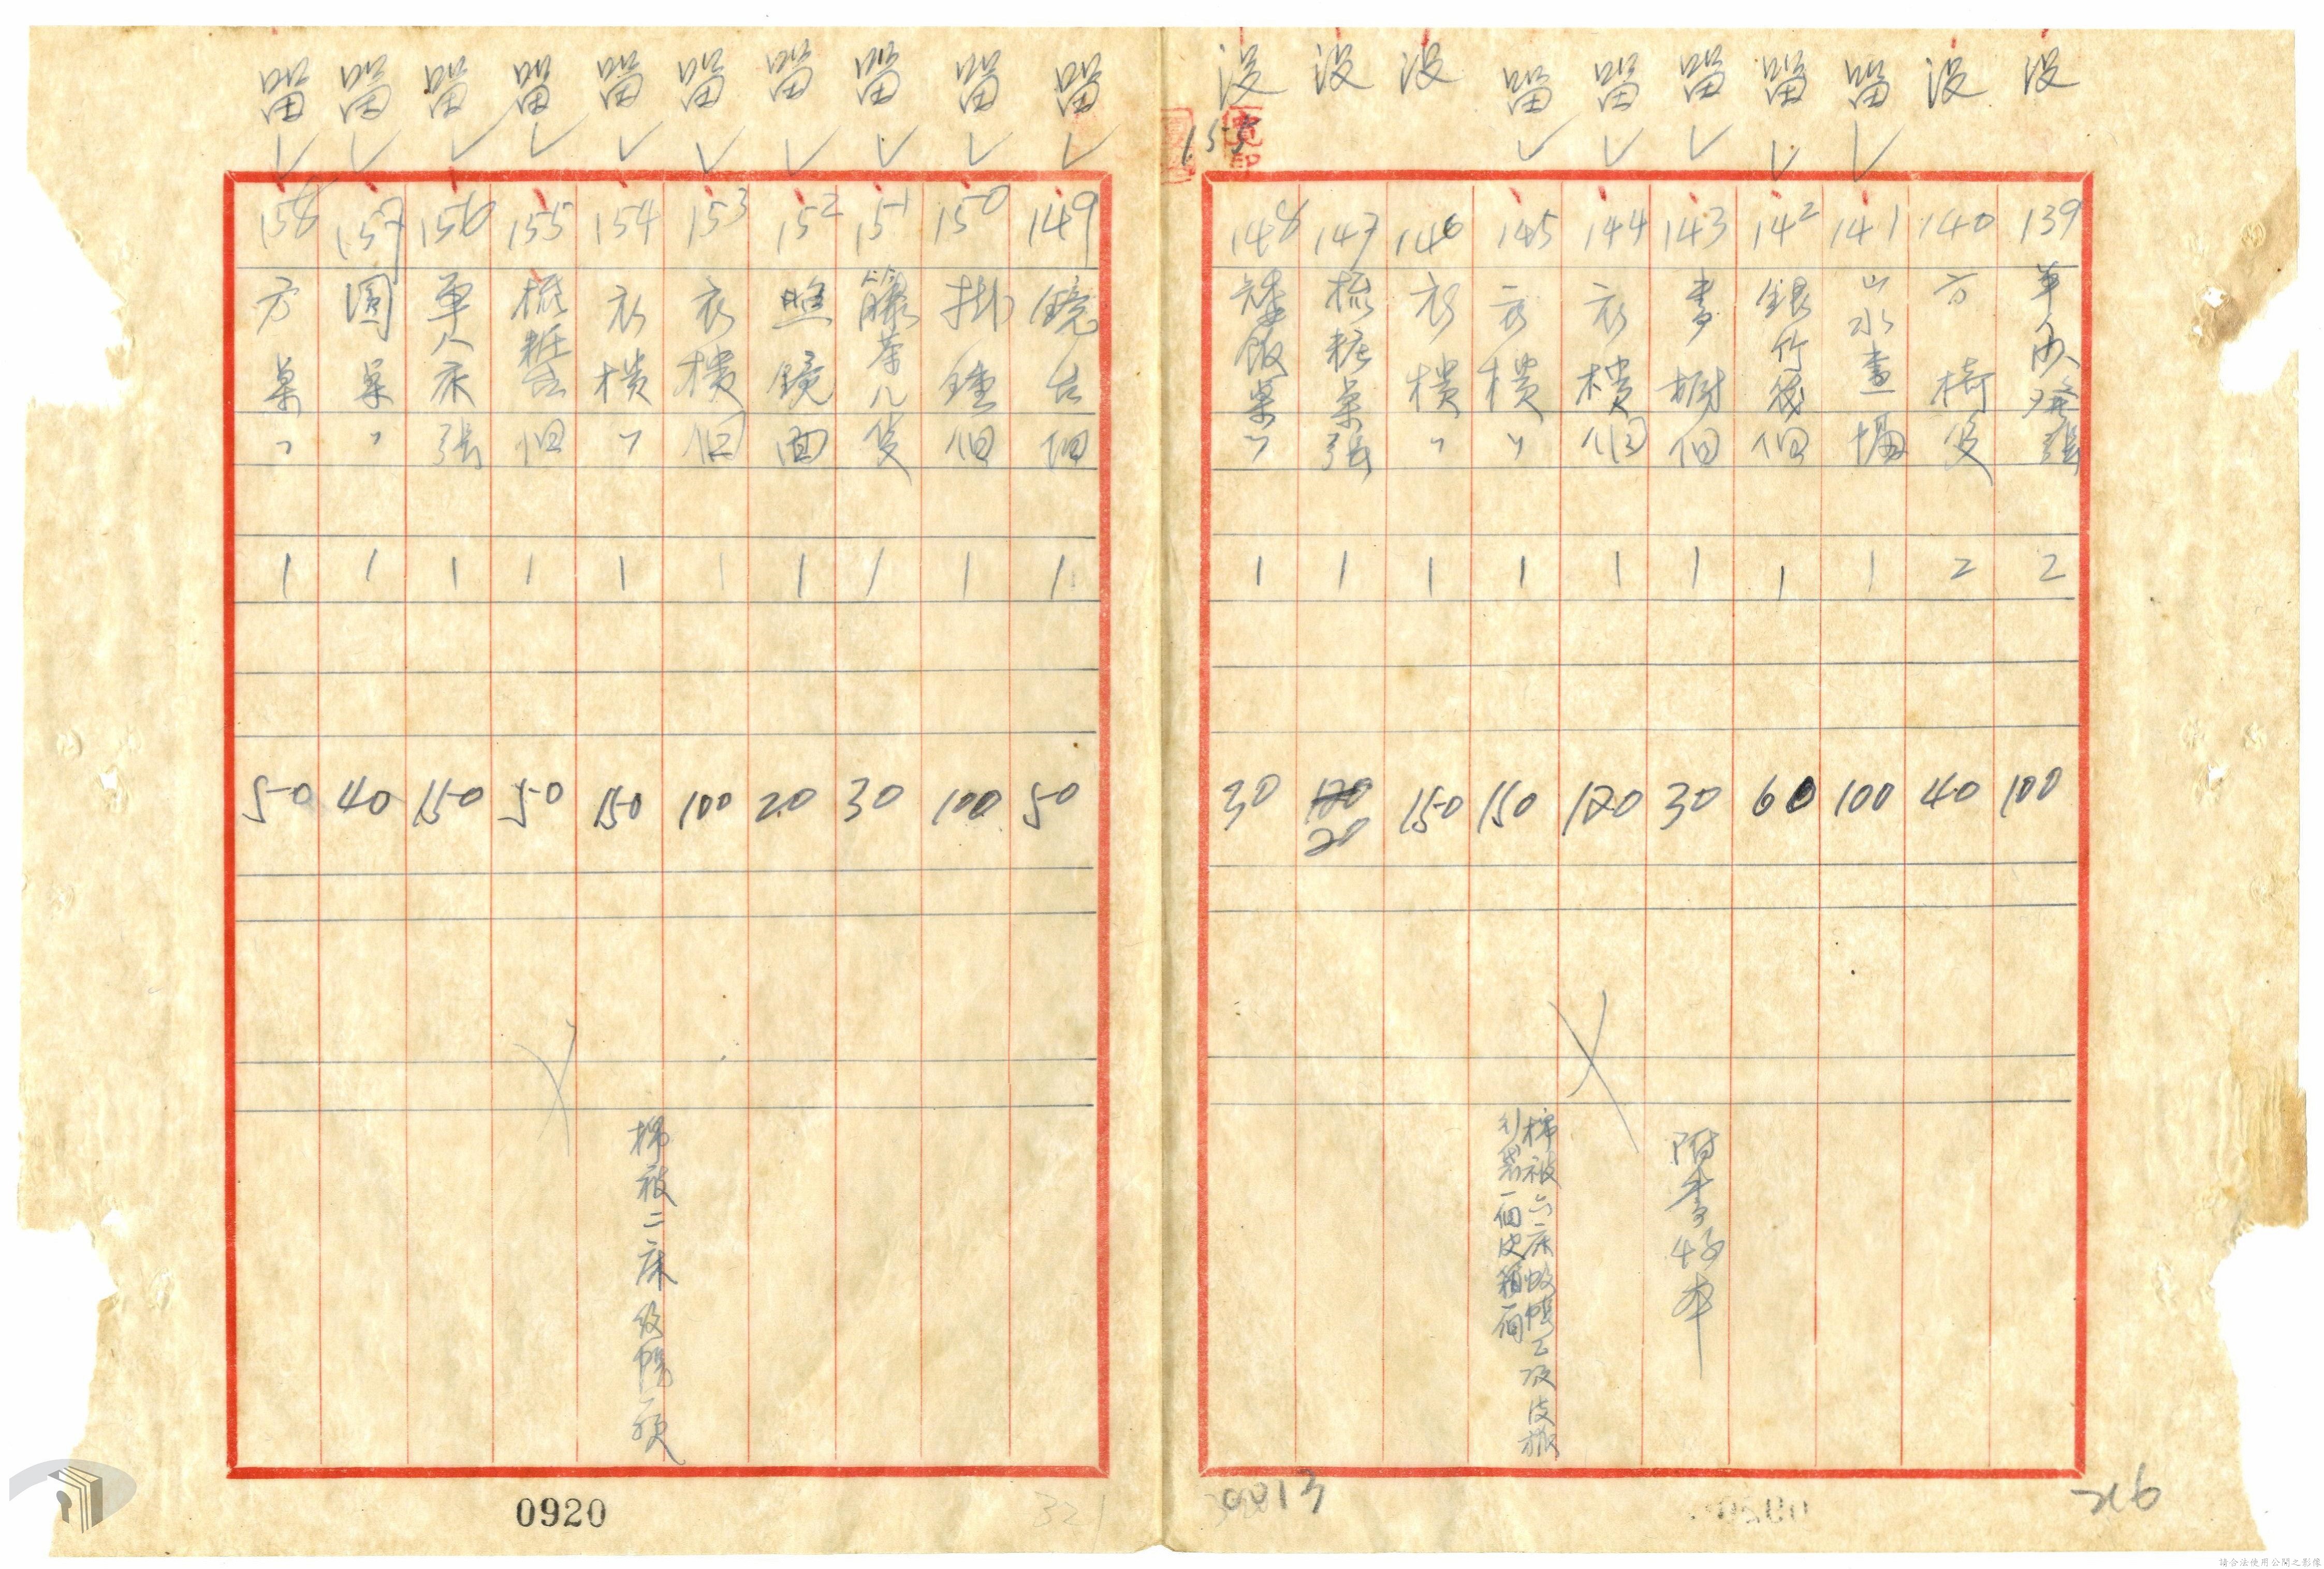 没 139 單人沙發 張 2 100
没 140 方椅 隻 2 40
留 141 山水畫 幅 1 100
留 142 銀竹筏 個 1 60
留 143 書櫥 個 1 30 附書45本
留 144 衣櫃 個 1 120
留 145 衣櫃 〃 1 150 棉被六床蚊帳二頂皮
一個皮箱一個
没 146 衣櫃 〃 1 150
没 147 梳粧桌 張 1 120 20
没 148 矮飯桌 〃 1 30
155
留 149 鏡台 個 1 50
留 150 掛鐘 個 1 100
留 151 籐茶几 隻 1 30
留 152 照鏡 面 1 20
留 153 衣櫃 個 1 100
留 154 衣櫃 〃 1 150 棉被二床蚊帳一頂
留 155 梳粧台 個 1 50
留 156 單人床 張 1 150
留 157 圓桌 〃 1 40
留 158 方桌 〃 1 50
0013
321
0920
請合法使用公開之影像